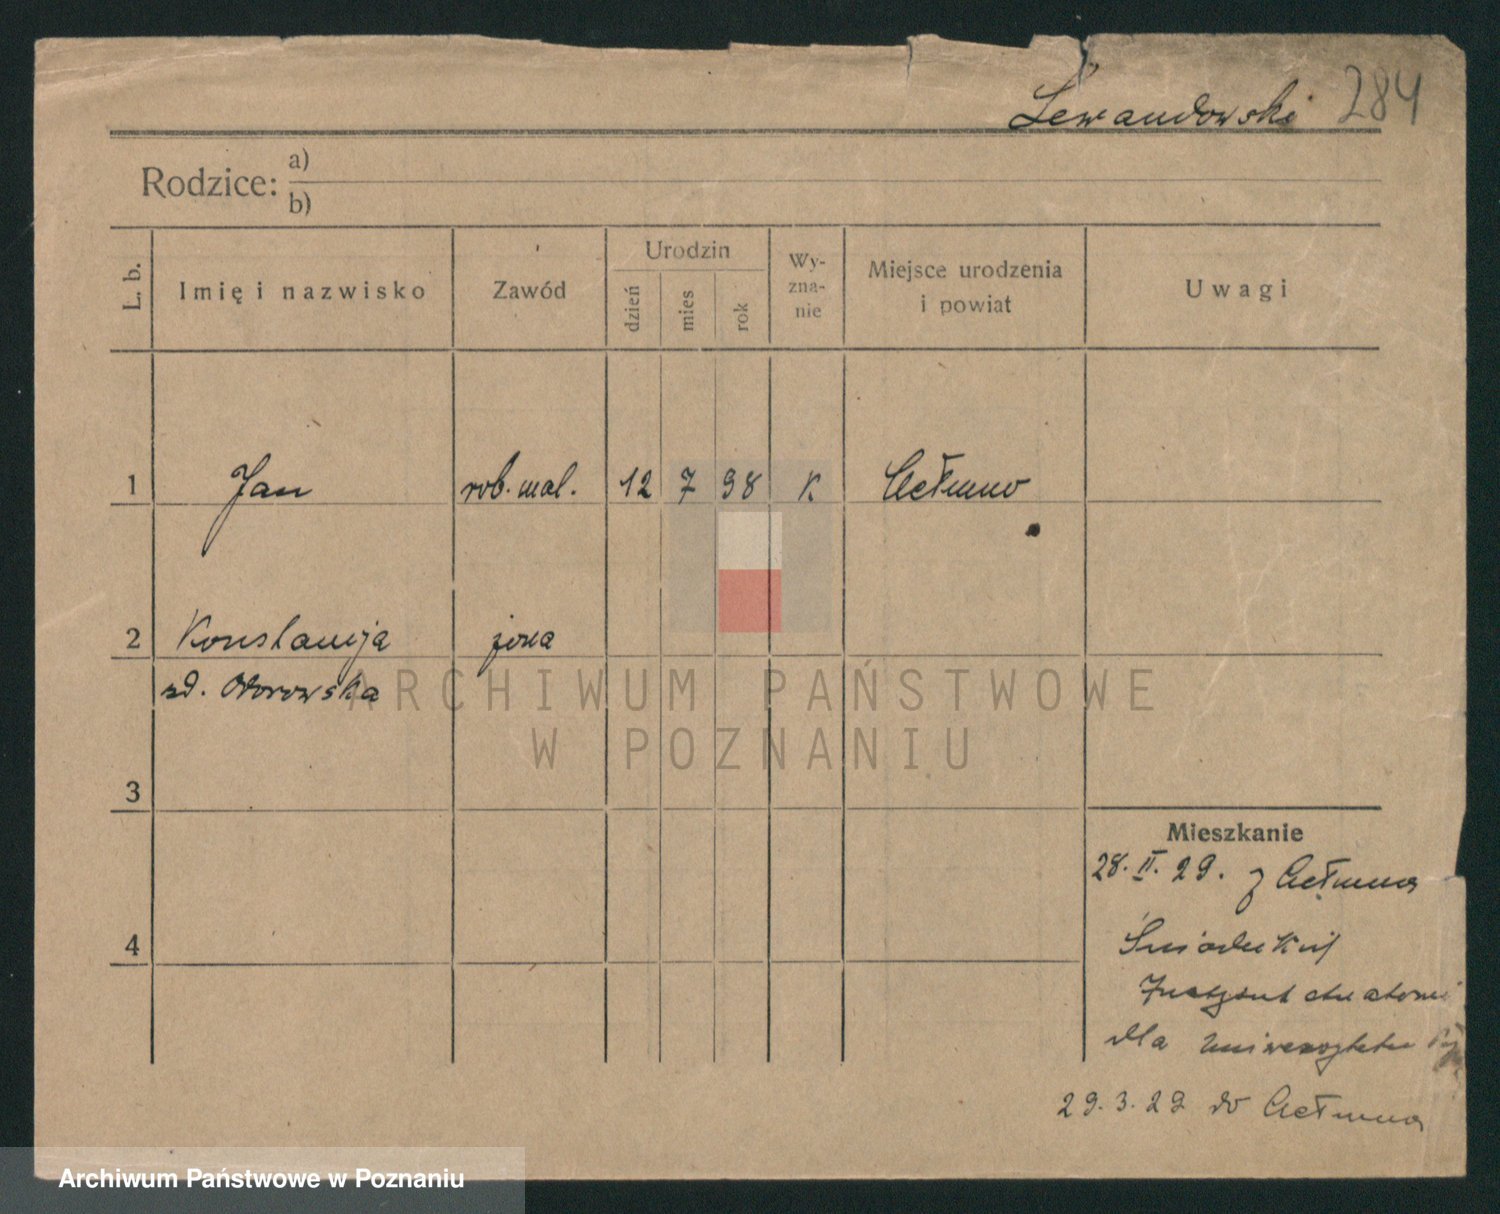 Lewandowski 284
Rodzice: a)
b)
L. b.
Imię i nazwisko
Zawód
Urodzin
dzień
mies
rok
Wy-
zna-
nie
Miejsce urodzenia
i powiat
Uwagi
1 Jan rob. mal. 12 7 98 K Chełmno
2 Konstancja żona
zd.
3
4
Mieszkanie
28. II. 29. z Chełmna
Śniadeckij
Instytut
dla Uniwersytetu
29. 3. 29 do Chełmna
ARCHIWUM PAŃSTWOWE
W POZNANIU
Archiwum Państwowe w Poznaniu